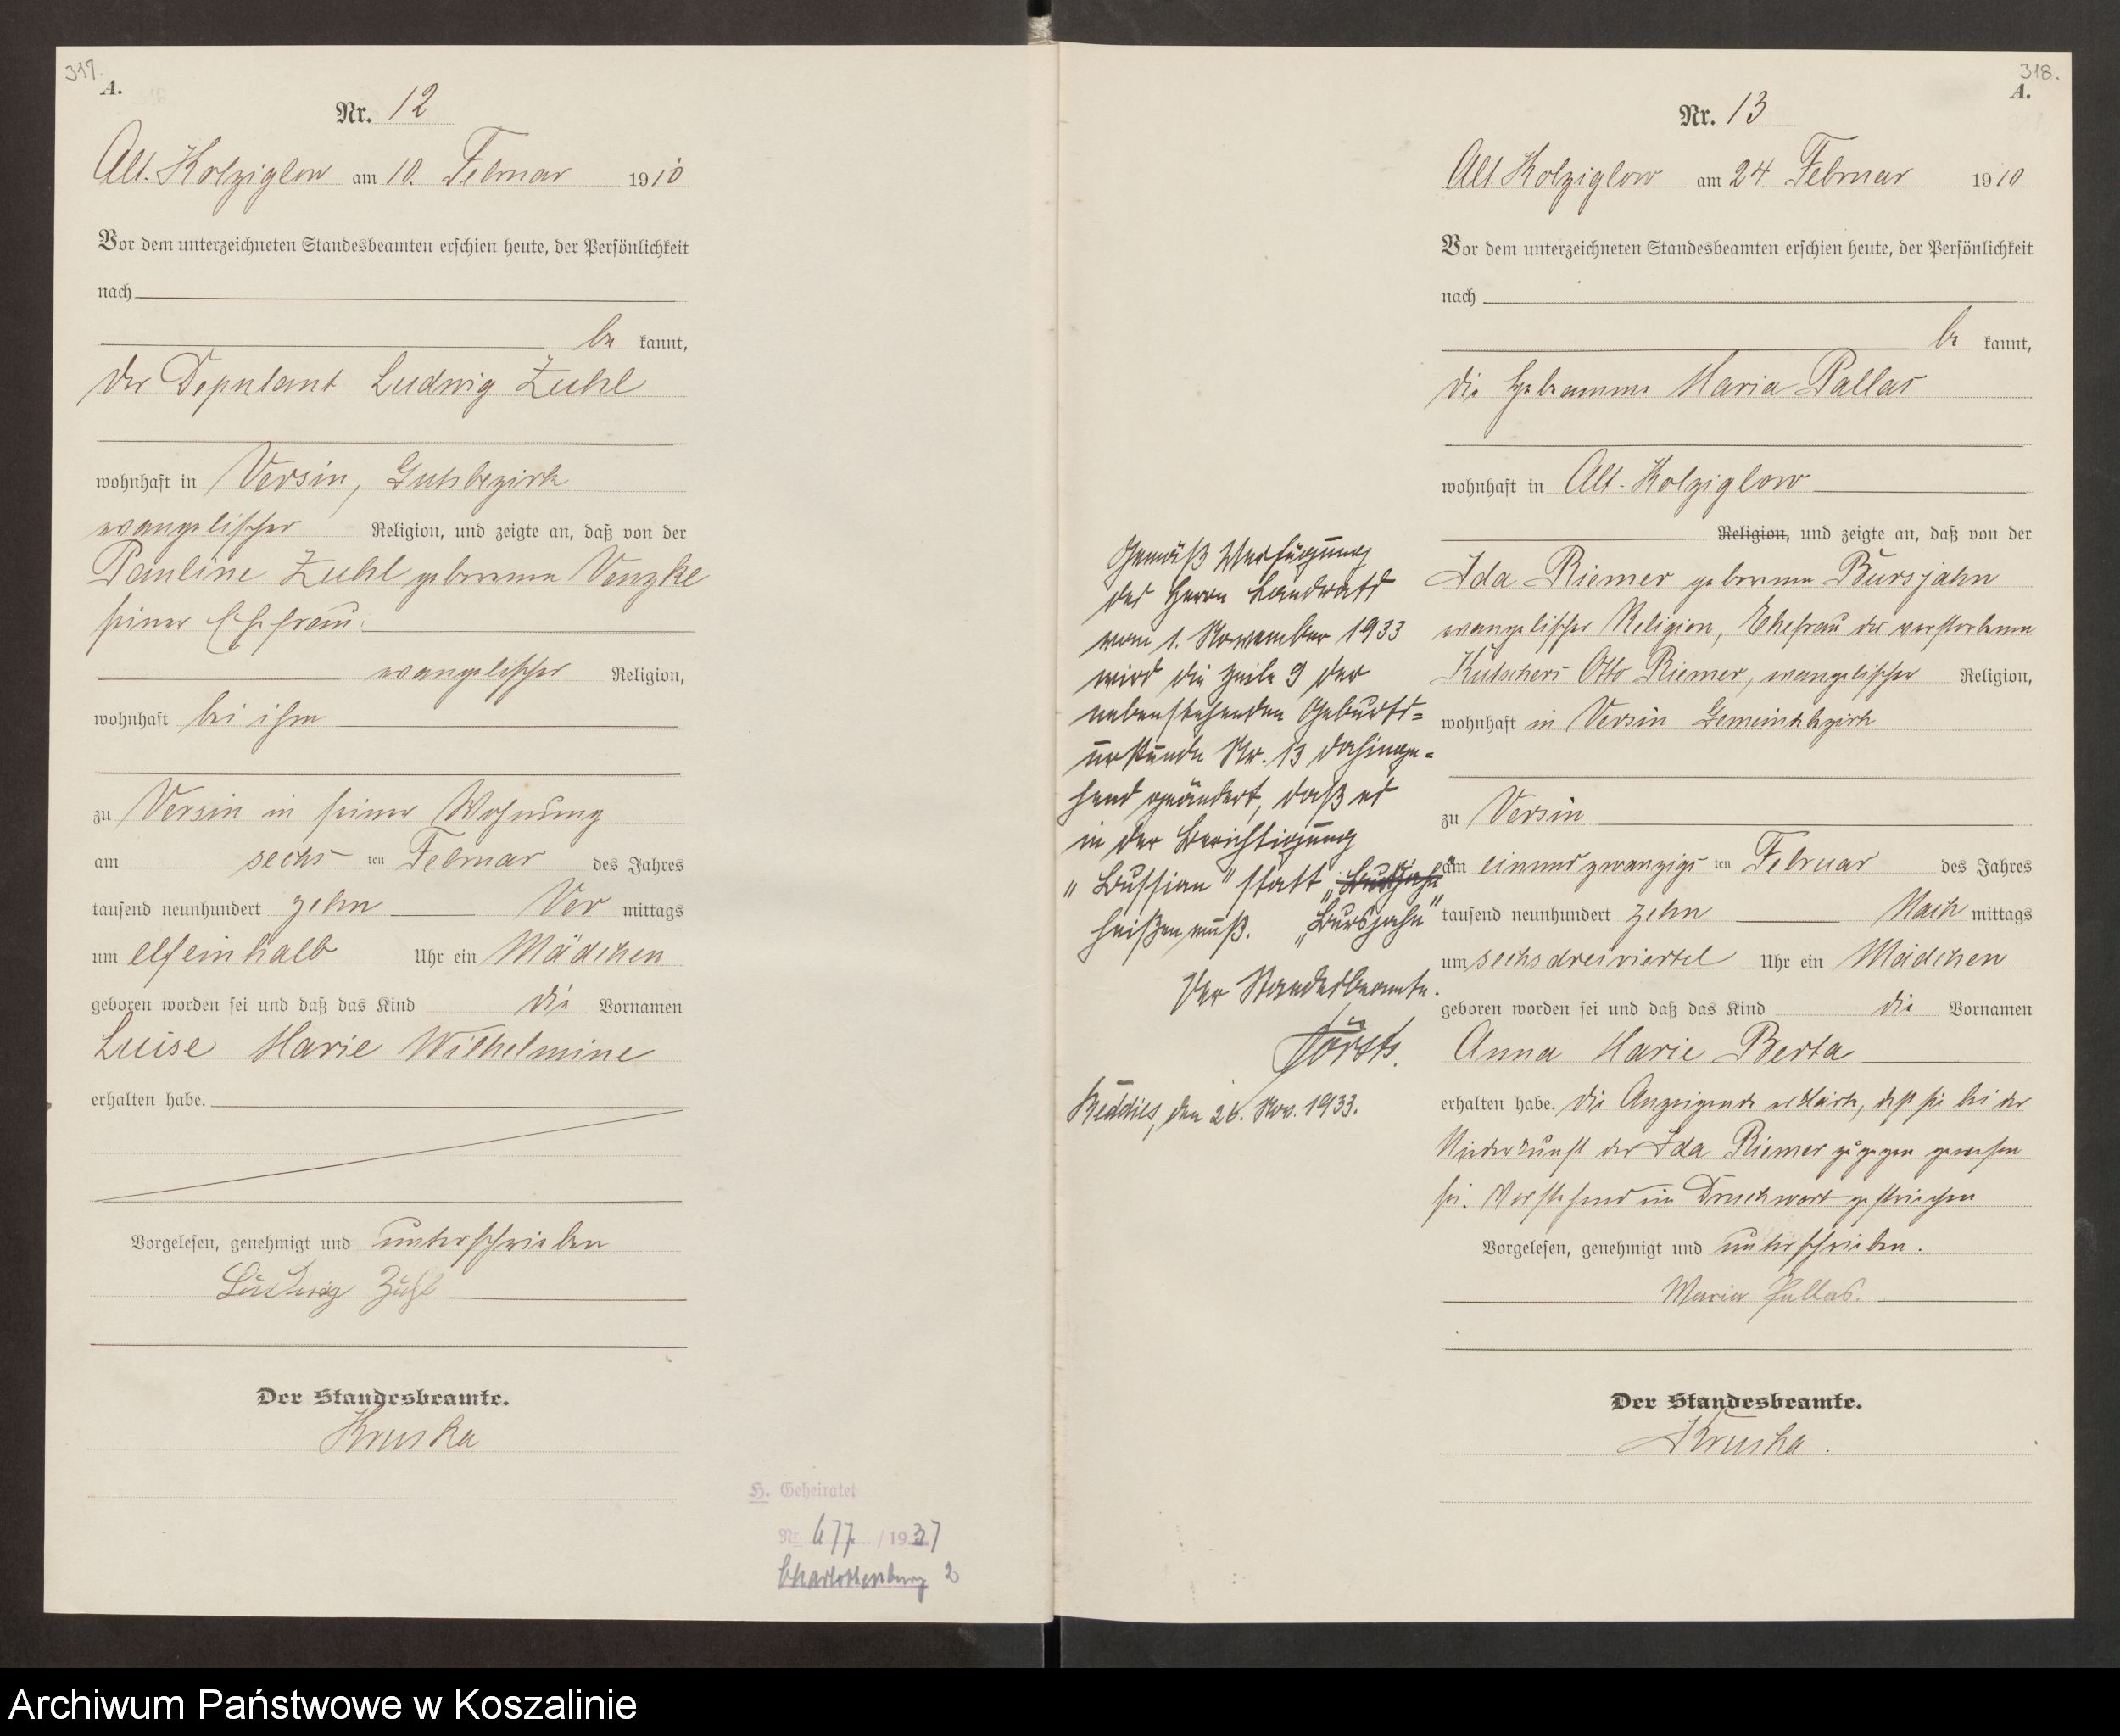 317.
A.
Nr. 12
Alt. Kolziglow am 10. Februar 1910
Vor dem unterzeichneten Standesbeamten erschien heute, der Persönlichkeit
nach
be kannt,
der Deputant Ludwig Zuhl
wohnhaft in Versin, Gutsbezirk
evangelischer Religion, und zeigte an, daß von der
Pauline Zuhl geborenen Venzke
seiner Ehefrau
evangelischer Religion,
wohnhaft bei ihm
zu Versin in seiner Wohnung
am sechs ten Februar des Jahres
tausend neunhundert zehn Vor mittags
um elfeinhalb Uhr ein Mädchen
geboren worden sei und daß das Kind die Vornamen
Luise Marie Wilhelmine
erhalten habe.
Vorgelesen, genehmigt und unterschrieben
Ludwig Zuhl
Der Standesbeamte.
Kruska
H. Geheiratet
Nr. 677 / 1937
Charlottenburg 2
318.
A.
Nr. 13
Alt. Kolziglow am 24. Februar 1910
Vor dem unterzeichneten Standesbeamten erschien heute, der Persönlichkeit
nach
be kannt,
die Hebamme Maria Pallas
wohnhaft in Alt-Kolziglow
Religion, und zeigte an, daß von der
Ida Riemer geborene Bursjahn
evangelischer Religion, Ehefrau des verstorbenen
Kutschers Otto Riemer, evangelischer Religion,
wohnhaft in Versin Gemeindebezirk
zu Versin
am einundzwanzigs ten Februar des Jahres
tausend neunhundert zehn Nach mittags
um sechsdreiviertel Uhr ein Mädchen
geboren worden sei und daß das Kind die Vornamen
Anna Marie Berta
erhalten habe. Die Anzeigende erklärte, daß sie bei der
Niederkunft der Ida Riemer zugegen gewesen
sei. Vorstehend ein Druckwort gestrichen
Vorgelesen, genehmigt und unterschrieben.
Maria Pallas.
Der Standesbeamte.
Kruska.
Gemäß Verfügung
des Herrn Landrats
vom 1. November 1933
wird die Zeile 9 der
nebenstehenden Geburts=
urkunde Nr. 13 dahinge=
hend geändert, daß es
in der Berichtigung
"Bussian" statt "Bursjahn"
heißen muß. "Bursjahn"
Der Standesbeamte.
Reddies, den 26. Nov. 1933.
Archiwum Państwowe w Koszalinie